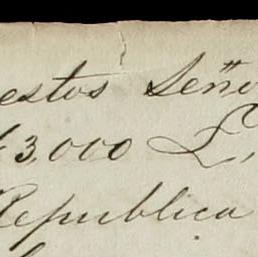 estos Señ
3,000 L,
Republica